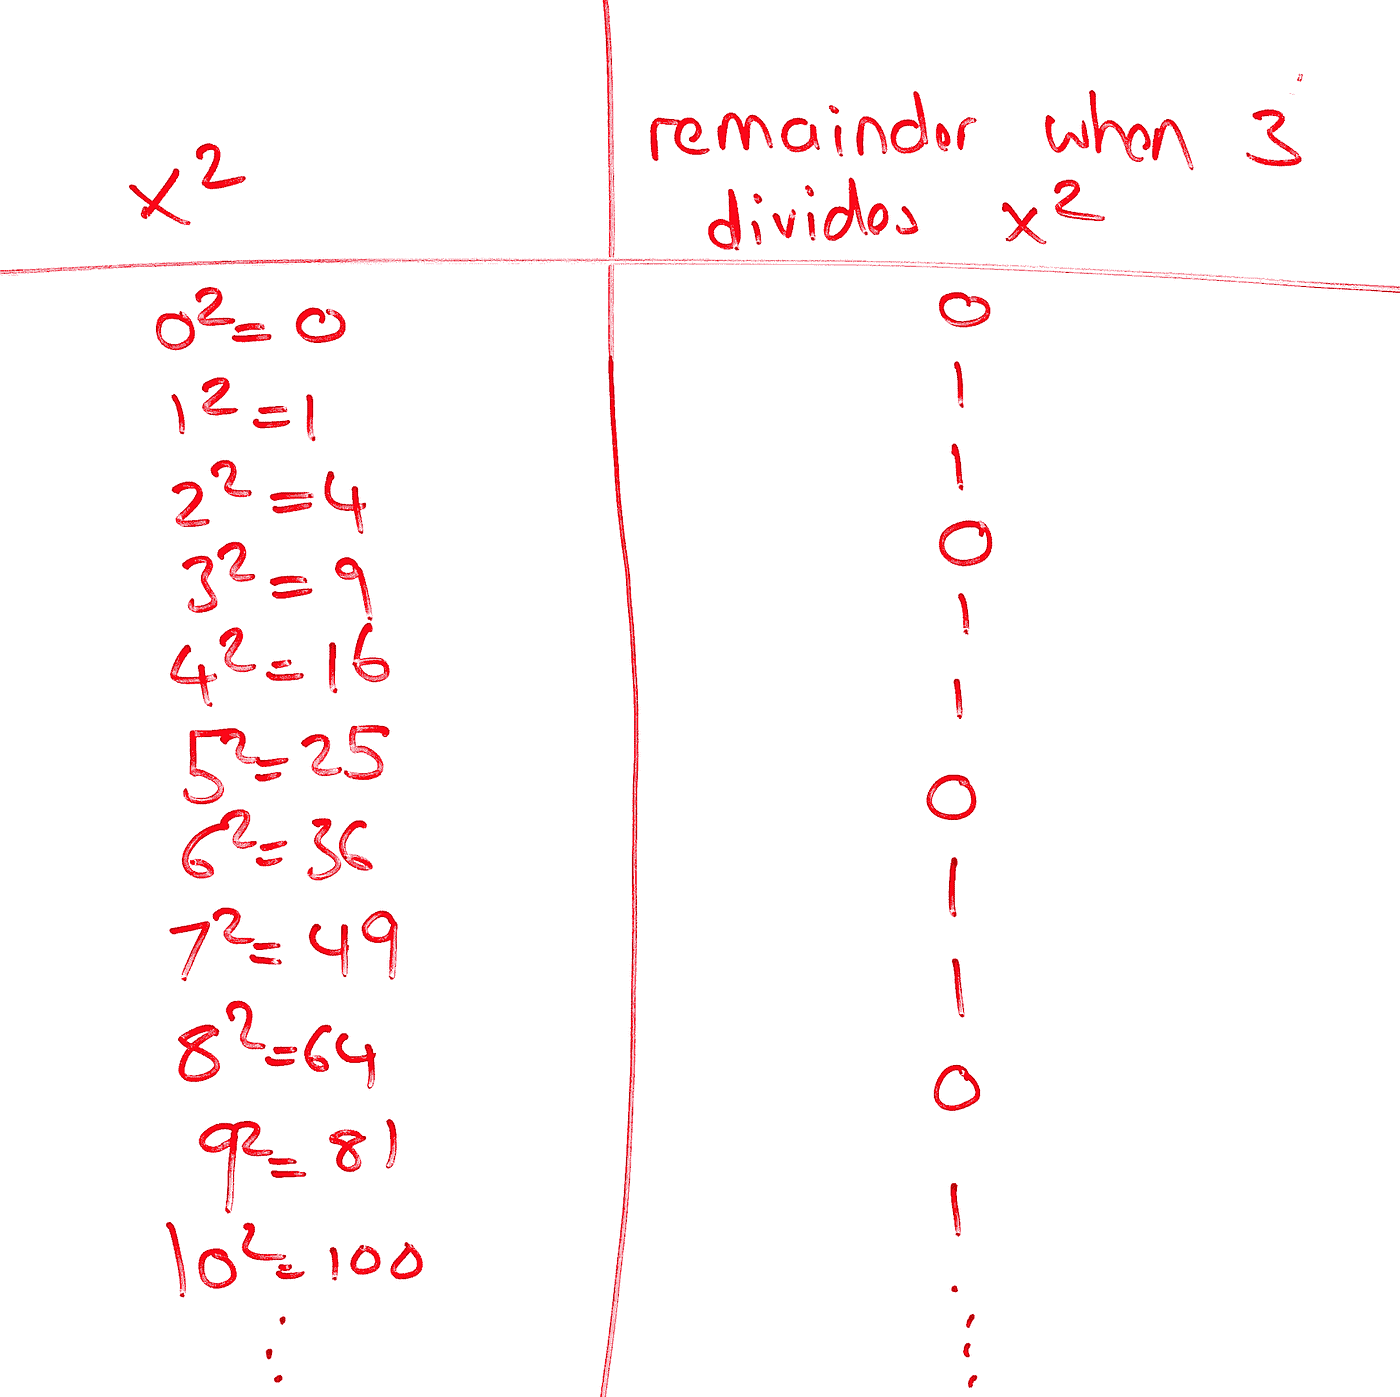 x²
remainder when 3
divides x²
0² = 0
0
1² = 1
1
2² = 4
1
3² = 9
0
4² = 16
1
5² = 25
1
6² = 36
0
7² = 49
1
8² = 64
1
9² = 81
0
10² = 100
1